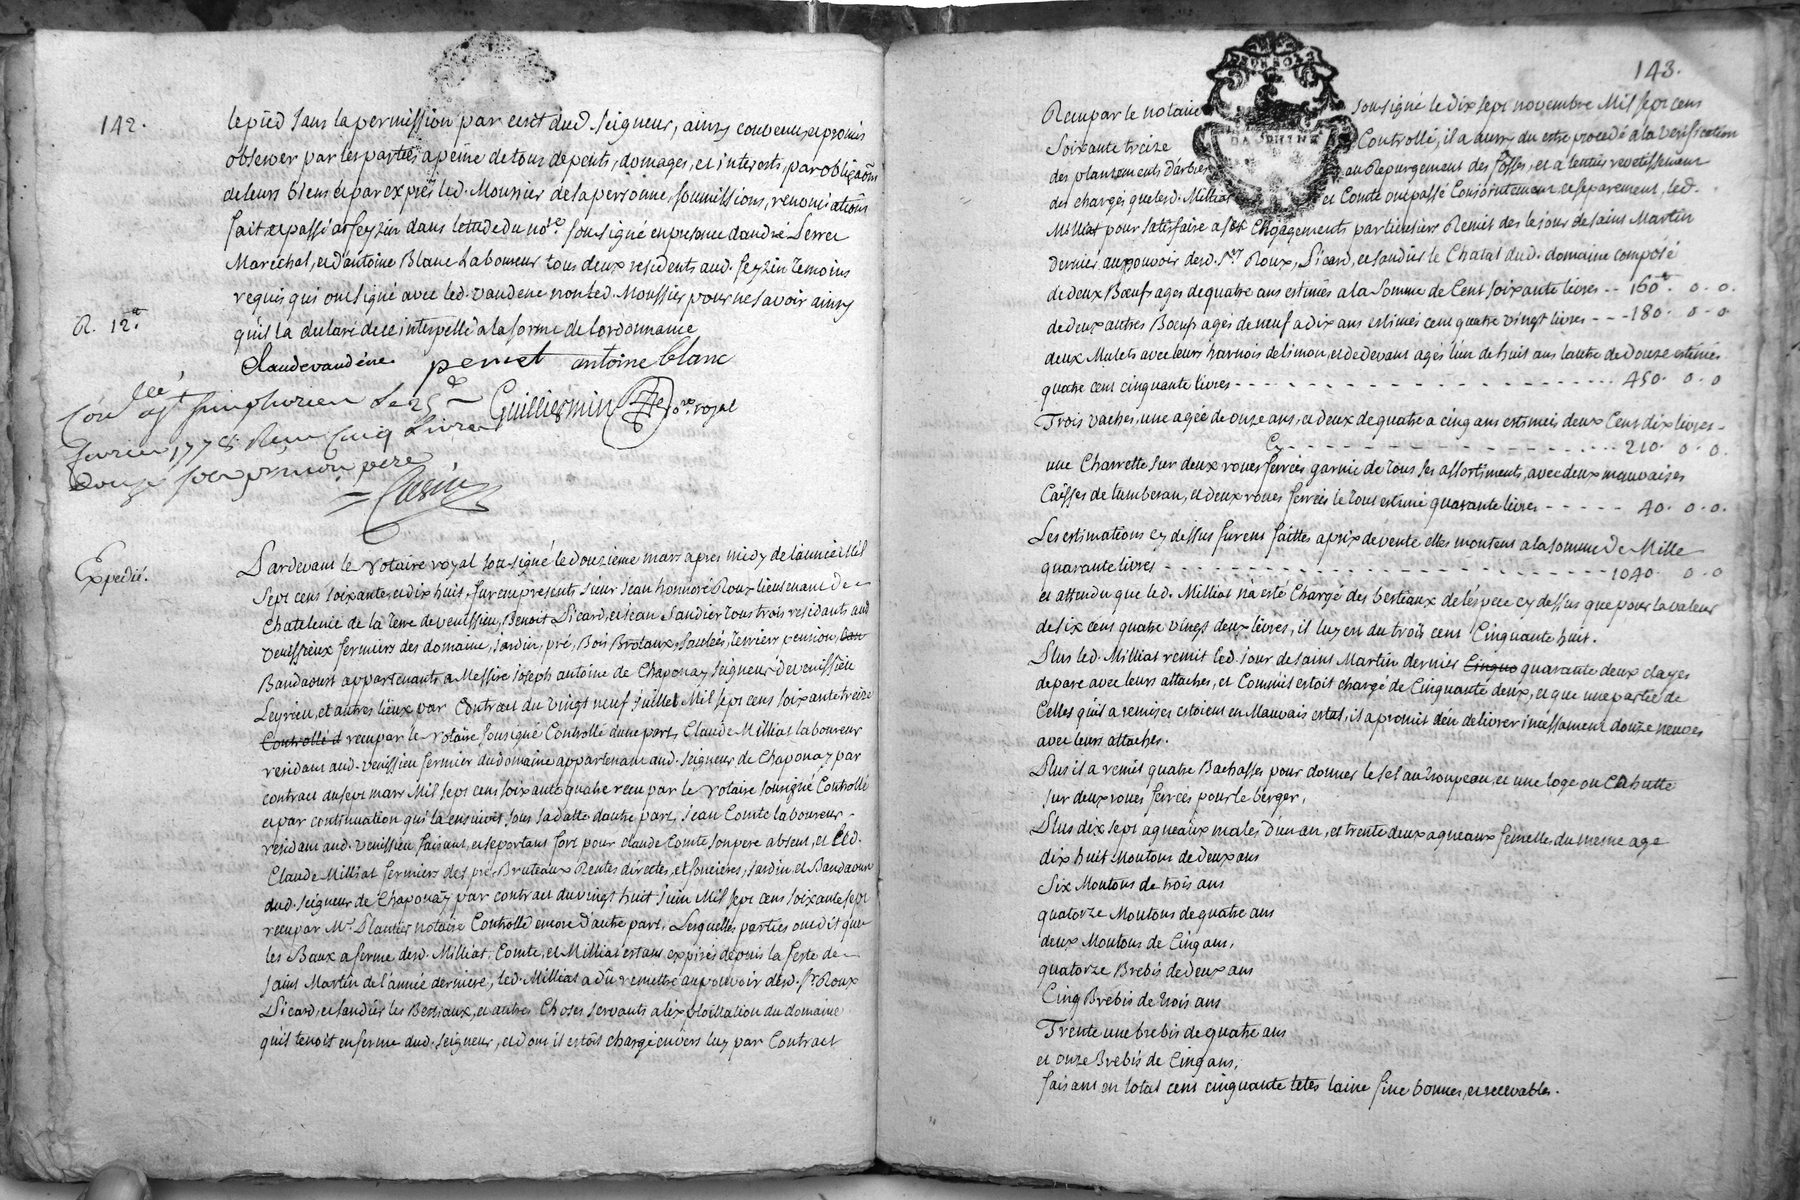 142.
le pied sans la permission par ecrit dud. seigneur, ainsy convenu et promis
observer par les parties a peine de tous depents, domages, et interests, par obligaõn
de leurs biens et par exprés led. Moussier de sa personne, soumissions, renonciatiõns
fait et passé a feyzin dans l'etude du nore. sousigné en presence d'andré Perret
Marechal, et d'antoine Blanc Laboureur tous deux residents aud. feyzin temoins
requis qui ont signé avec led. vandene non led. Moussier pour ne savoir ainsy
qu'il la declaré de ce interpellé a la forme de l'ordonnance
R. 12 tt
Claude vandéne perret antoine blanc
Guilliermin Nore. royal
Con llé a st simphorien le 25 e
fevrier 1778 Reçu Cinq Livres
douze sols pr mon pere
Expedié.
Pardevant le Notaire royal sousigné le douzieme mars apres midy de l'année Mil
sept cens soixante et dix huit, furent presents sieur Jean honnoré Roux lieutenant de
Chatelenie de la terre de venissieu, Benoit Picard, et Jean Sandier tous trois residants aud
venissieux fermiers des domaine, jardin, pré, Bois Brotaux, saulées, terriers pension,
Bandaourt appartenants a Messire Joseph antoine de Chaponay seigneur de venissieu
Leyrieu, et autres lieux par Contract du vingt neuf Juillet Mil sept cens soixante treize
Controllé d recu par le Notaire sousigné Controllé d'une part, Claude Milliat laboureur
residant aud. venissieu fermier du domaine appartenant aud. seigneur de Chaponay par
contract du sept mars Mil sept cens soixante quatre recu par le Notaire sousigné Controllé
et par continuation qui l'a ensuivit sous sa datte d'autre part, Jean Comte laboureur
residant aud. venissieu faisant, et se portant fort pour claude Comte son pere absent, et led.
Claude Milliat fermiers des pré Bruteaux Rentes directes, et foncieres, Jardin et Bandaourt
dud. seigneur de Chaponay par contract du vingt huit Juin Mil sept cens soixante sept
recu par Mr. Plantier notaire Controllé encore d'autre part. Lesquelles parties ont dit que
les Baux a ferme desd. Milliat, Comte, et Milliat estant expirés depuis la feste de
saint Martin de l'année derniere, led. Milliat a dû remettre au pouvoir desd. sr. Roux
Picard, et Sandier les Bestiaux, et autres Choses servants a l'exploittation du domaine
qu'il tenoit en ferme dud. seigneur, et dont il estoit chargé envers luy par Contract
143.
Recu par le notaire sousigné le dix sept novembre Mil sept cens
soixante treize Controllé, il a aussy du estre procedé a la verification
des plantements d'arbres au Repurgement des fossés, et a l'entier revetissement
des charges que lesd. Milliat et Comte ont passé Conjointement et separement, led.
Milliat pour satisfaire a ses Engagements particuliers Remit des le jour de saint Martin
dernier au pouvoir desd. Srs. Roux, Picard, et Sandier le Chatal dud. domaine composé
de deux Bœufs ages de quatre ans estimés a la somme de Cent soixante livres -- 160tt. 0. 0.
de deux autres Bœufs agés de neuf a dix ans estimés cent quatre vingt livres --- 180. 0. 0
deux Mulets avec leurs harnois de limon, et de devant agés l'un de huit ans l'autre de douze estimés
quatre cent cinquante livres --- 450. 0. 0
Trois vaches, une agée de onze ans, et deux de quatre a cinq ans estimées deux Cent dix livres -
Cy --- 210. 0. 0.
une Charrette sur deux roues ferrées garnie de tous ses assortiments, avec deux mauvaises
Caisses de tumberau, et deux roues ferrées le tout estimé quarante livres --- 40. 0. 0.
Les estimations cy dessus furent faittes a prix de vente elles montent a la somme de Mille
quarante livres --- 1040. 0. 0
et attendu que led. Milliat n'a esté Chargé des bestiaux de l'espece cy dessus que pour la valeur
de six cens quatre vingt deux livres, il luy en du trois cent Cinquante huit.
Plus led. Milliat remit led. jour de saint Martin dernier Cinqua quarante deux clayes
de parc avec leurs attaches, et Comm'il estoit chargé de Cinquante deux, et que une partie de
Celles qu'il a remises estoient en Mauvais estat, il a promit d'en delivrer incessament douze neuves
avec leurs attaches.
Plus il a remit quatre Bachasses pour donner le sel au troupeau et une loge ou Cahutte
sur deux roues ferrées pour le berger,
Plus dix sept agneaux males d'un an, et trente deux agneaux femelles du mesme age
dix huit Moutons de deux ans
Six Moutons de trois ans
quatorze Moutons de quatre ans
deux Moutons de Cinq ans,
quatorze Brebis de deux ans
Cinq Brebis de trois ans
Trente une brebis de quatre ans
et onze Brebis de Cinq ans,
faisant en total cent cinquante tetes laine fine bonnes, et recevables.
DAUPHINE